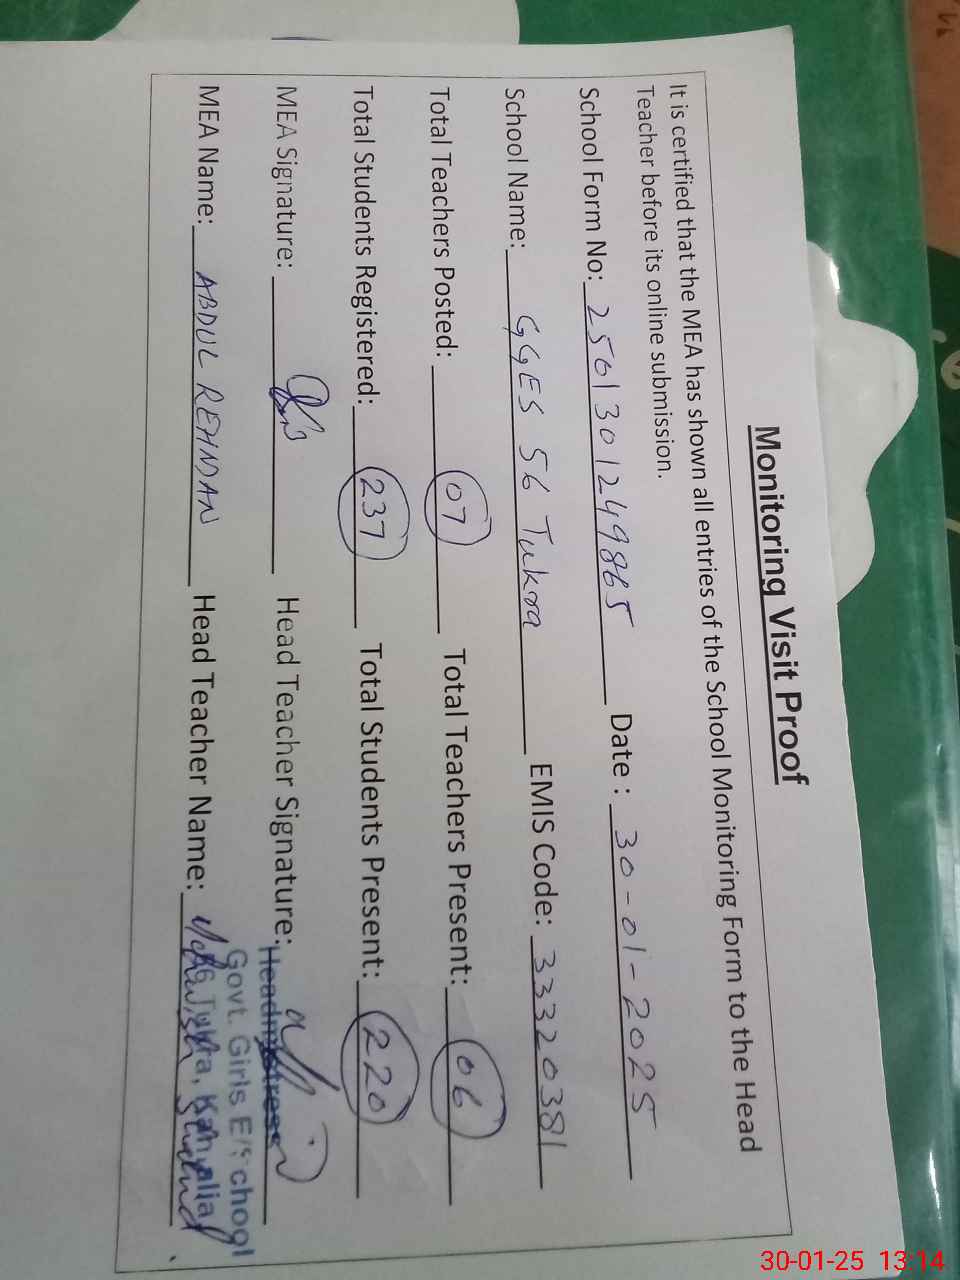 Monitoring Visit Proof
It is certified that the MEA has shown all entries of the School Monitoring Form to the Head
Teacher before its online submission.
School Form No: 2501301249865 Date : 30-01-2025
School Name: GGES 56 Tukra EMIS Code: 33320381
Total Teachers Posted: 07 Total Teachers Present: 06
Total Students Registered: 237 Total Students Present: 220
MEA Signature: Head Teacher Signature:
Headmistress
Govt. Girls E/School
MEA Name: ABDUL REHMAN Head Teacher Name:
Tukra, Kamalia
30-01-25 13:14